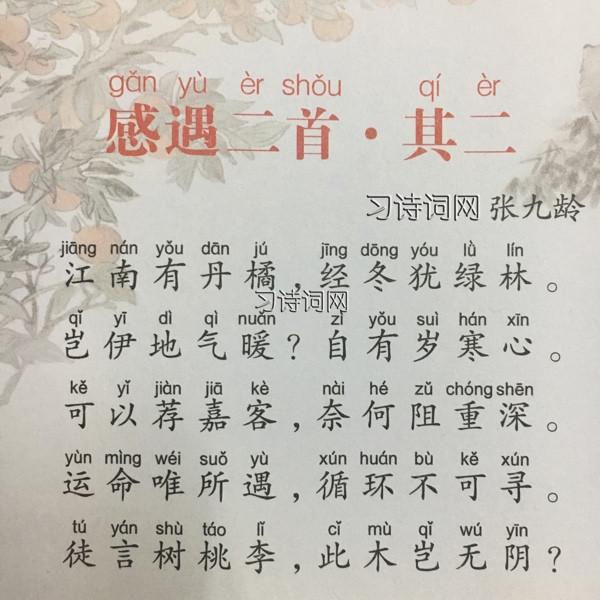 gǎn yù èr shǒu qí èr
感遇二首·其二
习诗词网 张九龄
jiāng nán yǒu dān jú jīng dōng yóu lǜ lín
江南有丹橘,经冬犹绿林。
习诗词网
qǐ yī dì qì nuǎn zì yǒu suì hán xīn
岂伊地气暖?自有岁寒心。
kě yǐ jiàn jiā kè nài hé zǔ chóng shēn
可以荐嘉客,奈何阻重深。
yùn mìng wéi suǒ yù xún huán bù kě xún
运命唯所遇,循环不可寻。
tú yán shù táo lǐ cǐ mù qǐ wú yīn
徒言树桃李,此木岂无阴?